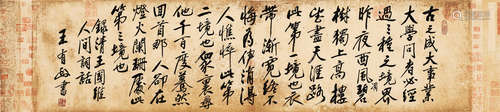 古之成大事業
大學問者必經
過三種境界
昨夜西風碧
樹獨上高樓
望盡天涯路
此第一境也衣
帶漸寬終不
悔為伊消得
人憔悴此第
二境也眾裏尋
他千百度驀然
回首那人却在
燈火闌珊處此
第三境也
錄清王國維
人間詞話
王 書